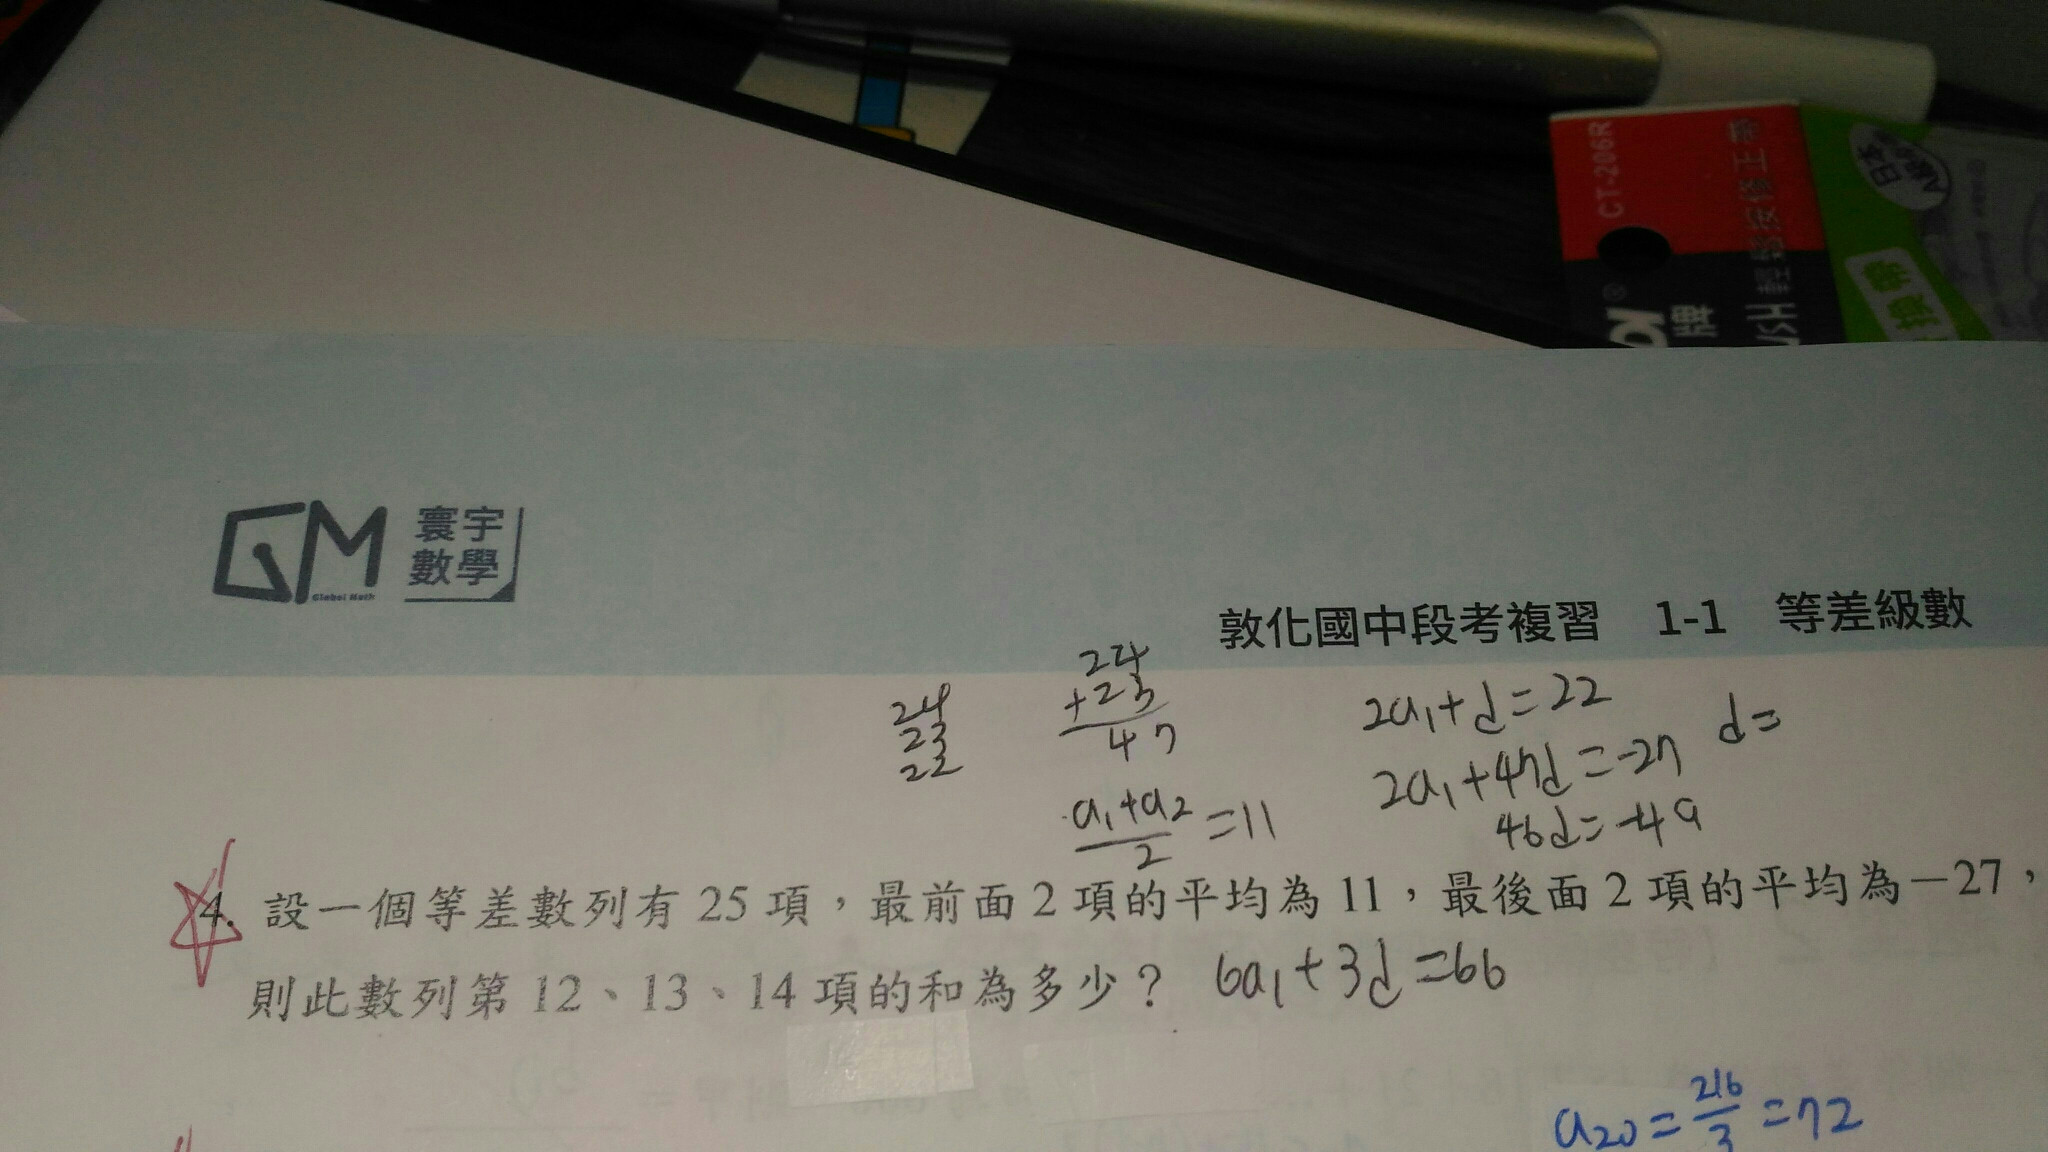 CT-206R
輕鬆按修正帶
牌
日本
替換帶
GM 寰宇
數學
Global Math
敦化國中段考複習 1-1 等差級數
24
23
22
24
+23
47
2a₁+d=22
d=
2a₁+47d=-27
46d=-49
a₁+a₂
2
=11
4. 設一個等差數列有 25 項，最前面 2 項的平均為 11，最後面 2 項的平均為－27，
則此數列第 12、13、14 項的和為多少？ 6a₁+3d=66
a₂₀=216/3=72